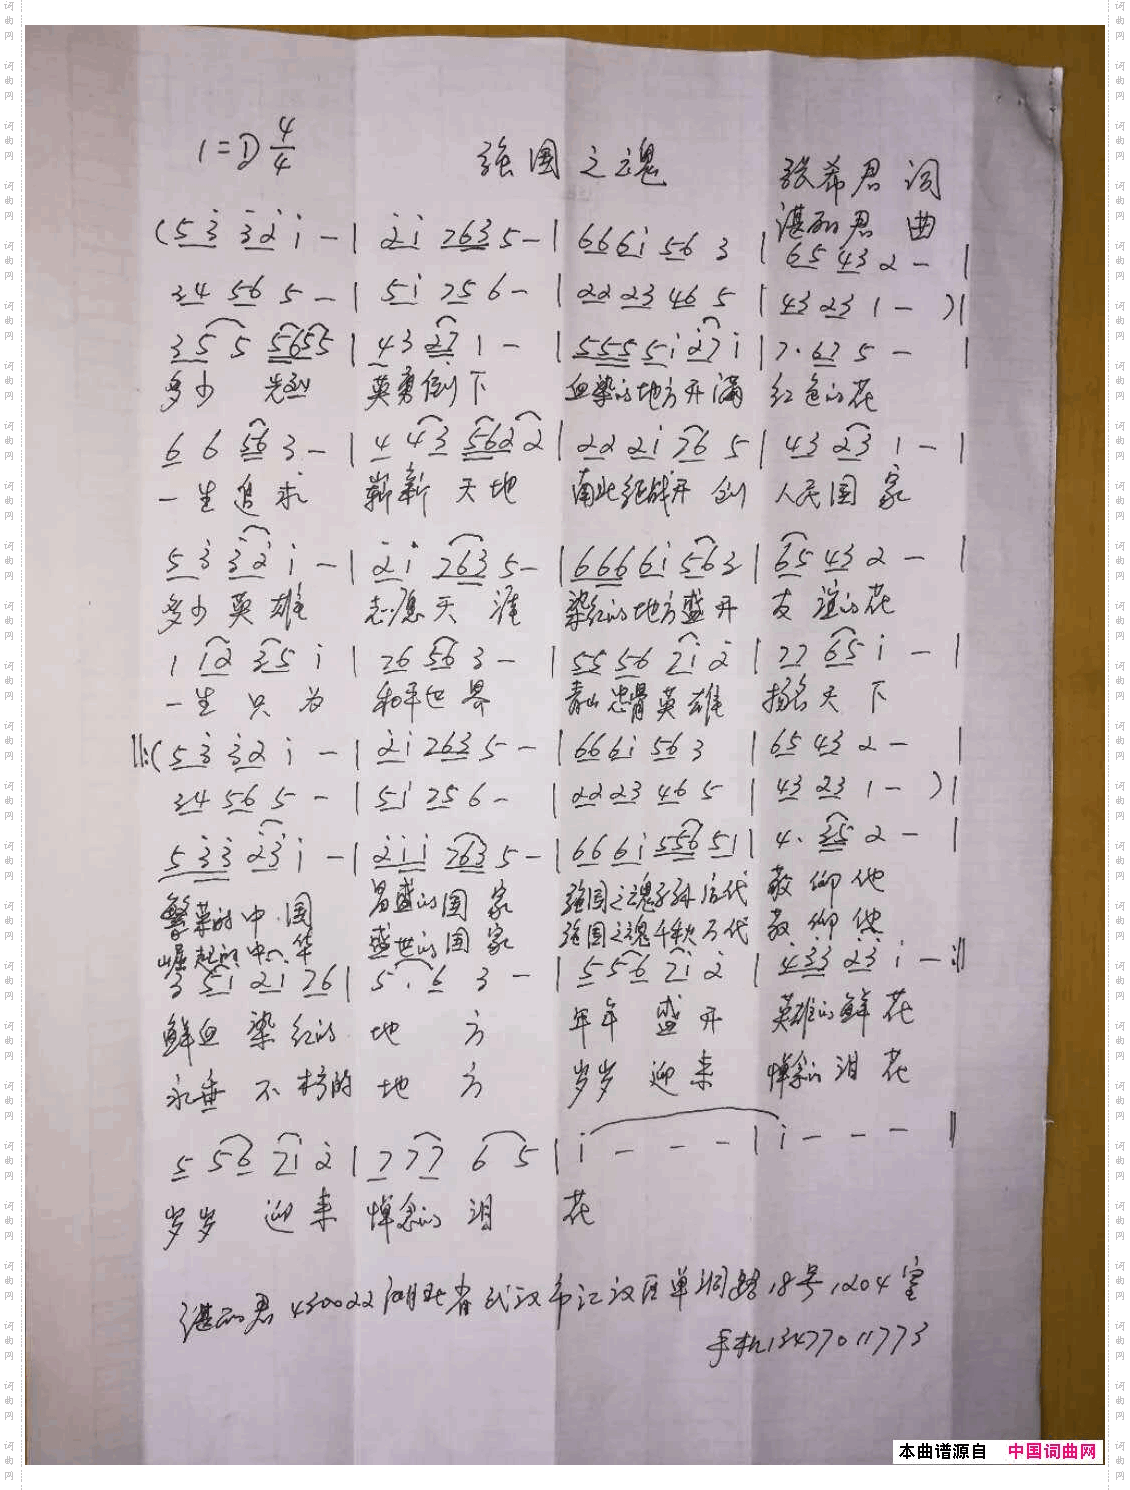 1=D 4/4
强国之魂
张希君 词
湛丽君 曲
(5 3̇ 3̇ 2̇ 1̇ - | 2̇ 1̇ 7 6 3 5 - | 6 6 6 1̇ 5 6 3 | 6 5 4 3 2 - |
3 4 5 6 5 - | 5 1̇ 7 5 6 - | 2 2 2 3 4 6 5 | 4 3 2 3 1 - )|
3 5 5 5 6 5 5 | 4 3 2 7 1 - | 5 5 5 5 1̇ 2̇ 7 1̇ | 7· 6 7 5 - |
多少 先烈 英勇倒下 血染的地方开满 红色的花
6 6 5 6 3 - | 4 4 3 5 6 2 2 | 2 2 2 1̇ 7 6 5 | 4 3 2 3 1 - |
一生追求 崭新天地 南北征战开创 人民国家
5 3̇ 3̇ 2̇ 1̇ - | 2̇ 1̇ 7 6 3 5 - | 6 6 6 6 1̇ 5 6 3 | 6 5 4 3 2 - |
多少英雄 志愿天涯 染红的地方盛开 友谊的花
1 1 2 3 5 1̇ | 7 6 5 6 3 - | 5 5 5 6 7 1̇ 2̇ | 7 7 6 5 1̇ - |
一生只为 和平世界 青山忠骨英雄 扬名天下
||:(5 3̇ 3̇ 2̇ 1̇ - | 2̇ 1̇ 7 6 3 5 - | 6 6 6 1̇ 5 6 3 | 6 5 4 3 2 - |
3 4 5 6 5 - | 5 1̇ 7 5 6 - | 2 2 2 3 4 6 5 | 4 3 2 3 1 - )|
5 3̇ 3̇ 2̇ 3̇ 1̇ - | 2̇ 1̇ 1̇ 7 6 3 5 - | 6 6 6 1̇ 5 5 6 5 1 | 4· 3 5 2 - |
繁荣的中国 昌盛的国家 强国之魂子孙后代 敬仰他
崛起的中华 盛世的国家 强国之魂千秋万代 敬仰他
3 5 1̇ 2̇ 1̇ 7 6 | 5· 6 3 - | 5 5 6 7 1̇ 2̇ | 4̇ 3̇ 3̇ 2̇ 3̇ 1̇ - :||
鲜血染红的地方 年年盛开 英雄的鲜花
永垂不朽的地方 岁岁迎来 悼念的泪花
5 5 6 7 1̇ 2̇ | 7 7 7 6 5 | 1̇ - - - | 1̇ - - - ||
岁岁迎来 悼念的泪 花
湛丽君 430022 湖北省武汉市江汉区单洞路18号1204室
手机13477011773
本曲谱源自 中国词曲网